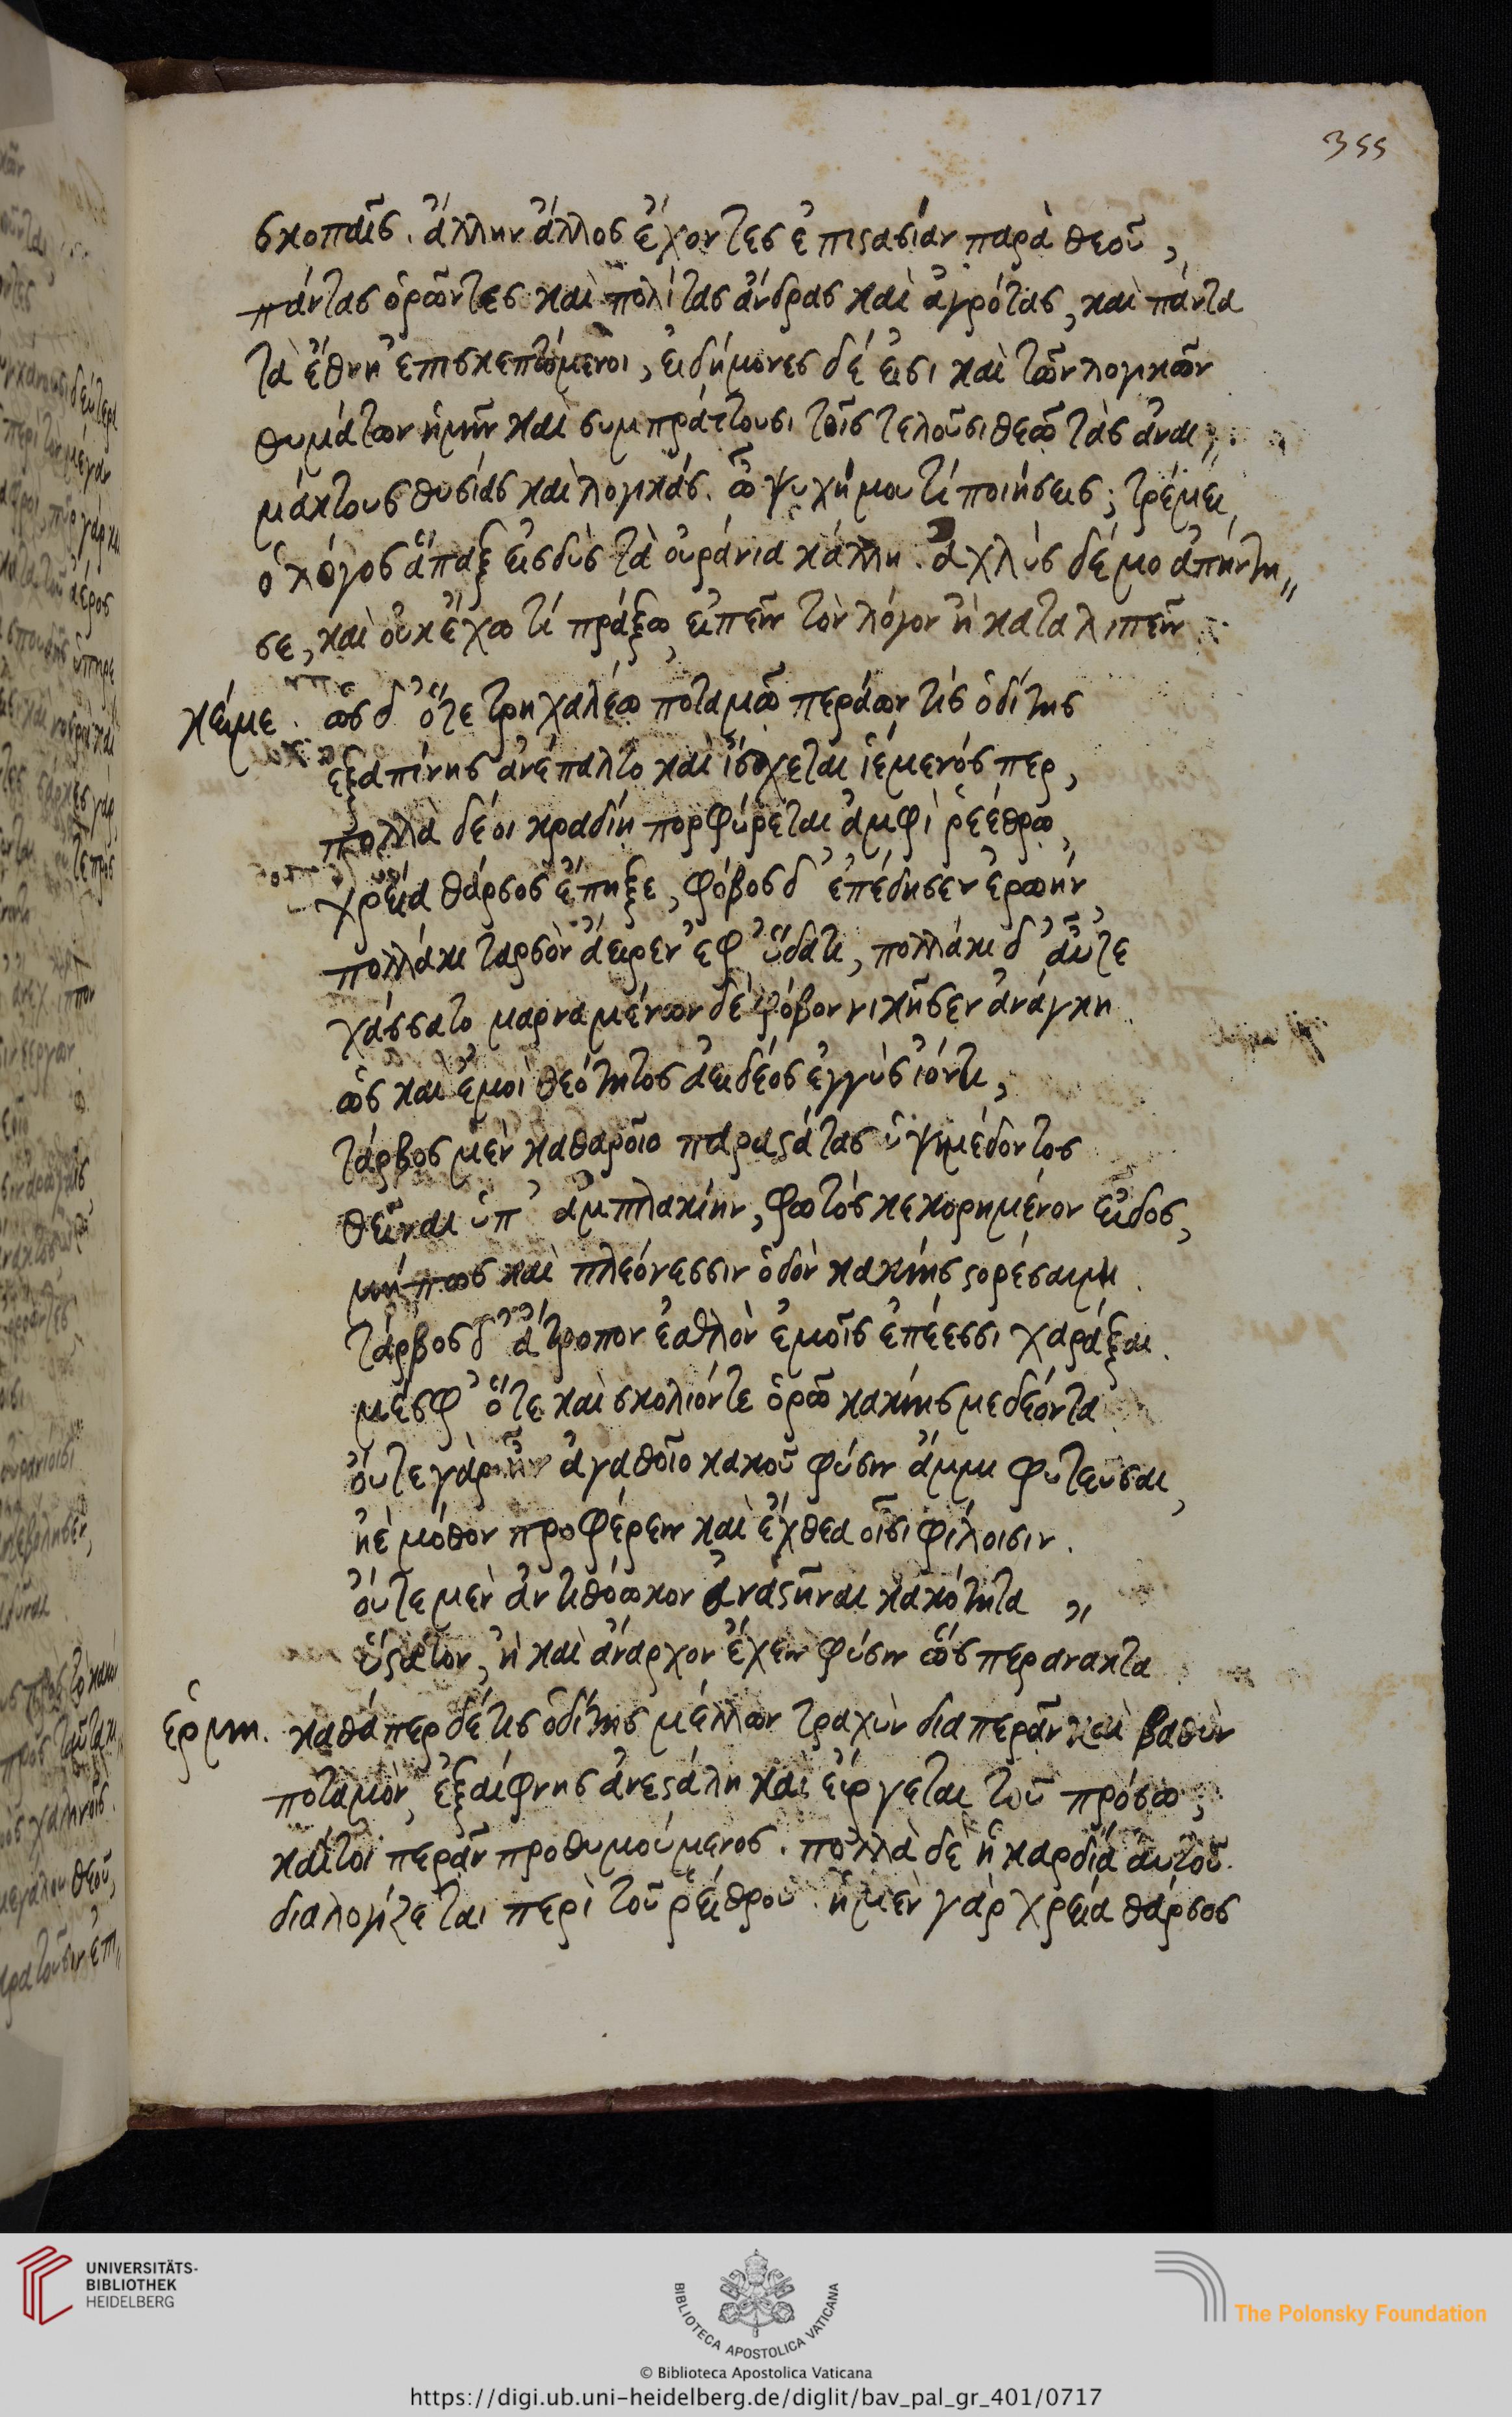 355
σκοπαῖς. ἄλλην ἄλλος ἔχοντες ἐπιστασίαν παρὰ θεοῦ,
πάντας ὁρῶντες καὶ πολίτας ἄνδρας καὶ ἀγρότας, καὶ πάντα
τὰ ἔθνη ἐπισκεπτόμενοι, εἰδήμονες δέ εἰσι καὶ τῶν λογικῶν
θυμάτων ἡμῖν καὶ συμπράττουσι τοῖς τελοῦσι θεῶ τὰς ἀναι,
μάκτους θυσίας καὶ λογικάς. ὦ ψυχή μου τί ποιήσεις; τρέμει
ὁ λόγος ἅπαξ εἰσδὺς τὰ οὐράνια κάλλη. ἀχλὺς δέ μο ἀπήντη„
σε, καὶ οὐκ ἔχω τί πράξω, εἰπεῖν τὸν λόγον ἢ καταλιπεῖν
κείμε. ὡς δ' ὅτε τρηχαλέω ποταμῶ περάων τίς ὁδίτης
ἐξαπίνης ἀνέπαλτο καὶ ἴσχεται ἱέμενός περ,
πολλὰ δέ οι κραδίη πορφύρεται ἀμφὶ ῥεέθρω,
χρεία θάρσος ἔπηξε, φόβος δ' ἐπέδησεν ἐρωήν,
πολλάκι ταρσὸν ἄειρεν ἐφ' ὕδατι, πολλάκι δ' αὖτε
χάσσατο μαρναμένων δὲ φόβον νικῆσεν ἀνάγκη
ὡς καὶ ἐμοὶ θεότητος ἀειδέος ἐγγὺς ἰόντι,
τάρβος μὲν καθαροῖο παραστάτας ὑψιμέδοντος
θεῖναι ὑπ' ἀμπλακίην, φωτὸς κεκορημένον εἶδος,
μήπως καὶ πλεόνεσσιν ὁδὸν κακίης στορέσαιμι.
τάρβος δ' ἄτροπον ἐσθλὸν ἐμοῖς ἐπέεσσι χαράξαι.
μέσφ' ὅτε καὶ σκολιόν τε ὁρῶ κακίης μεδέοντα
οὔτε γὰρ ἦν ἀγαθοῖο κακοῦ φύσιν ἄμμι φυτεῦσαι,
ἠὲ μόθον προφέρειν καὶ ἔχθεα οἷσι φίλοισιν.
οὔτε μὲν ἀντιθόωκον ἀναστῆναι κακότητα „
ὕστατον, ἢ καὶ ἄναρχον ἔχειν φύσιν ὥσπερ ἄνακτα
ἑρμη. καθάπερ δέ τις ὁδίτης μέλλων τραχὺν διαπερᾶν καὶ βαθὺν
ποταμὸν, ἐξαίφνης ἀνεστάλη καὶ εἴργεται τοῦ πρόσω,
καίτοι περᾶν προθυμούμενος. πολλὰ δὲ ἡ καρδία αὐτοῦ
διαλογίζεται περὶ τοῦ ῥείθρου. ἡ μὲν γὰρ χρεία θάρσος
UNIVERSITÄTS-
BIBLIOTHEK
HEIDELBERG
BIBLIOTECA APOSTOLICA VATICANA
© Biblioteca Apostolica Vaticana
The Polonsky Foundation
https://digi.ub.uni-heidelberg.de/diglit/bav_pal_gr_401/0717